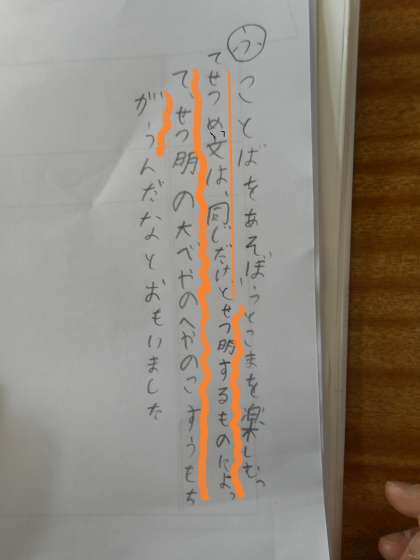 ふ
「ことばをあそぼう」「こまを楽しむ」
てせつめい文は、同じだけどせつ明するものによっ
て、せつ明の大べやのへやのこすうもち
がうんだなとおもいました